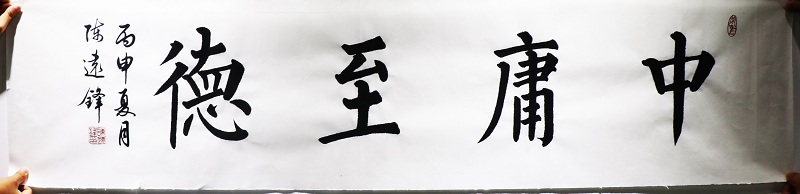 中庸至德
丙申夏月
陈遠鋒